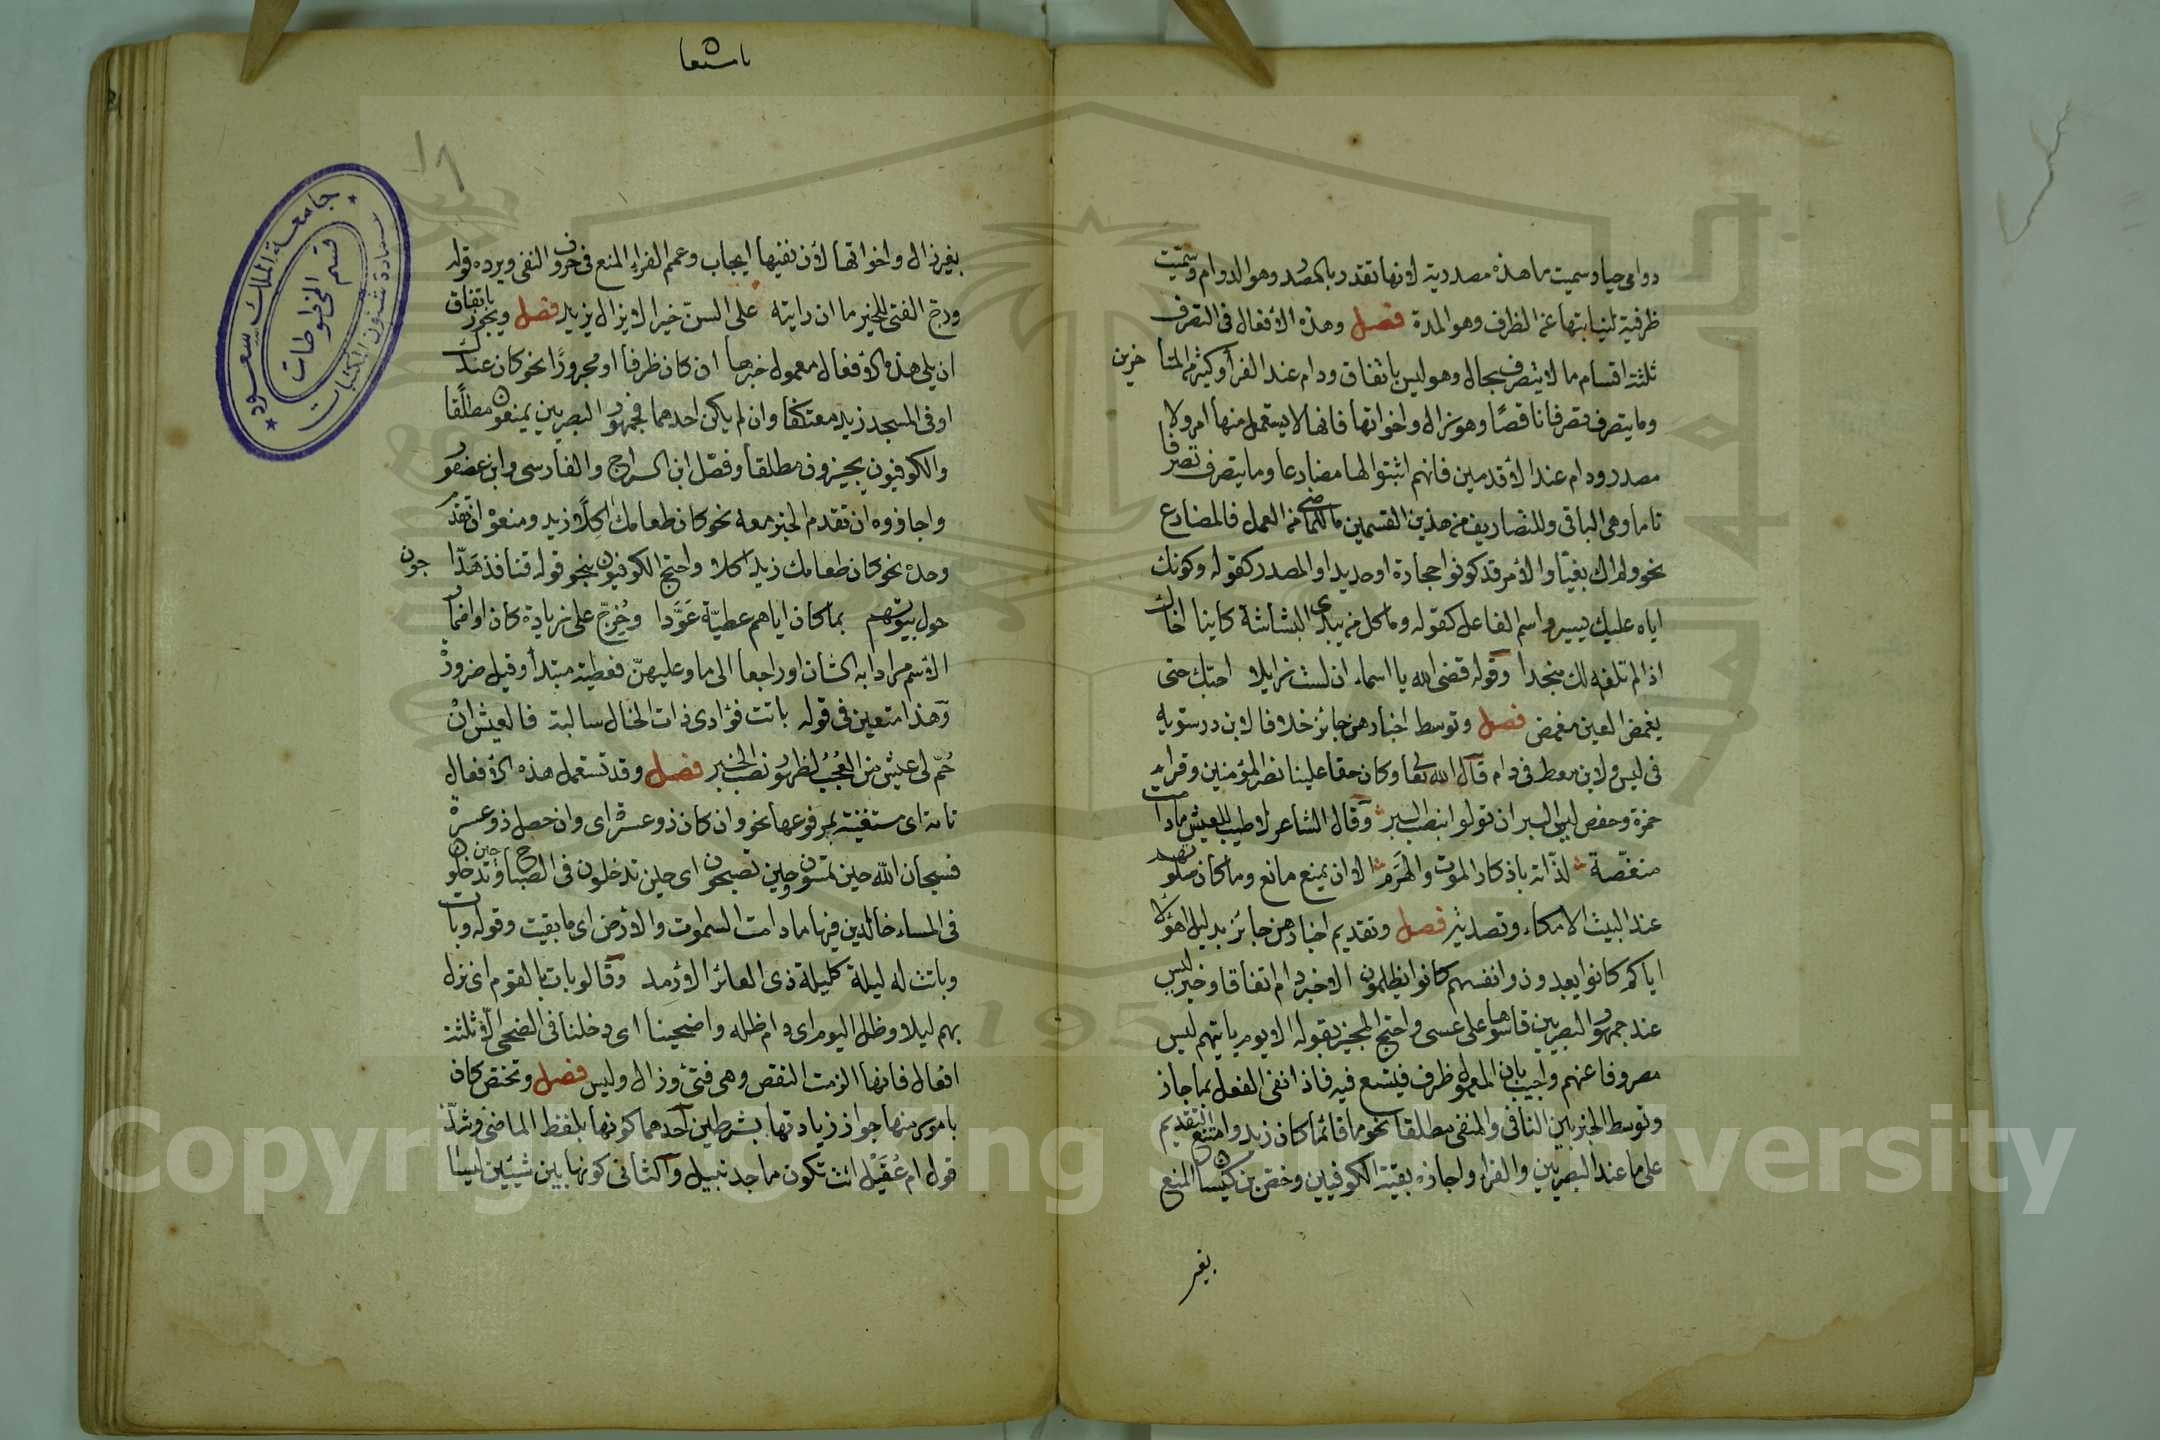 دوامى حيا وسميت ما هذه مصدرية لانها تقدر بالمصدر وهو الدوام وسميت
ظرفية لنيابتها عن الظرف وهو المدة فصل وهذه الافعال فى التصرف
ثلثة اقسام ما لا يتصرف بحال وهو ليس باتفاق ودام عند الفرا وكثير من المتا خرين
وما يتصرف تصرفا ناقصًا وهو زال واخواتها فانها لا يستعمل منها امر ولا
مصدر ودام عند الأقدمين فانهم اثبتوا لها مضارعا وما يتصرف تصرفا
تاما وهى الباقى وللتصاريف من هذين القسمين ما للماضى من العمل فالمضارع
نحو ولم اك بغيّا والأمر قد كونوا حجارة او حديدا والمصدر كقوله وكونك
اياه عليك يسير واسم الفاعل كقوله وما كل من يبدى البشاشة كاينا اخاك
اذا لم تلفه لك منجدا وقوله قضى الله يا اسماء ان لست زايلا احبك حتى
يغمض العين مغمض فصل وتوسط اخبارهن جائز خلافا لابن درستويه
فى ليس ولابن معط فى دام قال الله تعا وكان حقا علينا نصر المؤمنين وقراءة
حمزة وحفص ليس البر ان تولوا بنصب البر وقال الشاعر لا طيب للعيش ما دامت
منغّصة لذّاته باذكار الموت والهَرَم الا ان يمنع مانع وما كان صلوتهم
عند البيت الا مكاء وتصدية فصل وتقديم اخبارهن جائز بدليل اهؤلا
اياكم كانوا يعبدون وانفسهم كانوا يظلمون الا خبر دام اتفاقا وخبر ليس
عند جمهور البصريين قاسوها على عسى واحتج المجيز بقوله الا يوم ياتيهم ليس
مصروفا عنهم واجيب بان المعمول ظرف فيتسع فيه فاذا نفى الفعل بما جاز
وتوسط الخبر بين النافى والمنفى مطلقا نحو ما قائما كان زيد وامتنع التقديم
على ما عند البصريين والفراء واجازه بقية الكوفيين وخص بن كيسان المنع
بغير
باشعا
بغير زال واخواتها لأن نفيها ايجاب وعمم الفراء المنع فى حروف النفى ويرده قوله
ورج الفتى للخير ما ان رايته على السن خيرا لا يزال يزيد فصل ويجوز باتفاق
ان يلى هذه الأفعال معمول خبرها ان كان ظرفا او مجرورًا نحو كان عندك
او فى المسجد زيد معتكفا وان لم يكن احدهما فجمهور البصريين يمنعون مطلقًا
والكوفيون يجيزون مطلقا وفصّل ابن السراج والفارسى وابن عصفور
واجازوه ان تقدم الخبر معه نحو كان طعامك اكلاً زيد ومنعوا ان تقدم
وحده نحو كان طعامك زيد اكلا واحتج الكوفيون بنحو قوله قنافذ هَدّا جون
حول بيوتهم بما كان اياهم عطيّة عَوَّدا وخُرِّج على زيادة كان او اضمار
الأسم مرادا به الشان او راجعا الى ما وعليهنّ فعطية مبتدأ وقيل ضرورة
وهذا متعين فى قوله باتت فؤادى ذات الخال سالبة فالعيش انْ
حُمّ لى عيش من العُجُبُ لظهور نصب الخبر فصل وقد تستعمل هذه الأفعال
تامة اى مستغنية بمرفوعها نحو وان كان ذو عسرة اى وان حصل ذو عسرة
فسبحان الله حين تمسون وحين تصبحون اى حين تدخلون فى الصباح وحين تدخلون
فى المساء خالدين فيها ما دامت السموات والأرض اى ما بقيت وقوله وبات
وباتت له ليلة كليلة ذى العائر الأرمد وقالو بات بالقوم اى نزل
بهم ليلا وظل اليوم اى دام ظله واضحينا اى دخلنا فى الضحى الا ثلثة
افعال فانها الزمت النقص وهى فتئ وزال وليس فصل وتختص كان
بامور منها جواز زيادتها بشرطين احدهما كونها بلفظ الماضى وشذّ
قول ام عُقَيْل انت تكون ماجد نبيل والثانى كونها بين شيئين
جامعة الملك سعود
عمادة شئون المكتبات
قسم المخطوطات
Copyright © King Saud University
1957